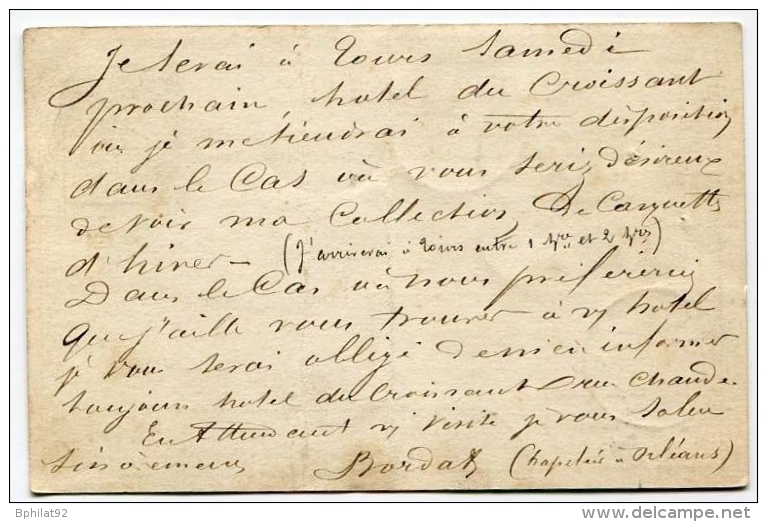 Je serai à Tours Samedi
prochain, hotel du Croissant
ou je me tiendrai à votre disposition
dans le Cas où vous seriez désireux
de voir ma Collection de Casquettes
d'hiver (J'arriverai à Tours entre 1 hre et 2 hres)
Dans le Cas où vous préfériez
que j'aille vous trouver à v/ hotel
je vous serai obligé de m'en informer
toujours hotel du Croissant rue Chaude.
En Attendant v/ visite je vous salue
sincèrement Bordat (Chapelier à Orléans)
Bphilat92
delcampe.net